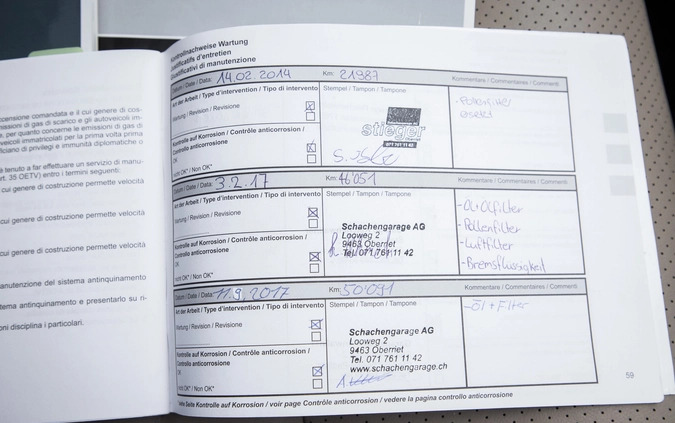 scensione comandata e il cui genere di cos-
missioni di gas di scarico e gli autoveicoli im-
e, per quanto concerne le emissioni di gas di
veicoli immatricolati per la prima volta prima
ficiano di privilegi e immunità diplomatiche o
è tenuto a far effettuare un servizio di manu-
rt. 35 OETV) entro i termini seguenti:
cui genere di costruzione permette velocità
cui genere di costruzione permette velocità
cui genere di costruzione permette velocità
manutenzione del sistema antinquinamento
stema antinquinamento e presentarlo su ri-
oni disciplina i particolari.
Kontrollnachweise Wartung
Justificatifs d'entretien
Giustificativi di manutenzione
Datum / Date / Data: 14.02.2014 Km: 21987 Kommentare / Commentaires / Commenti
Art der Arbeit / Type d'intervention / Tipo di intervento Stempel / Tampon / Tampone
Wartung / Revision / Revisione
- Pollenfilter
ersetzt
stieger
077 761 11 42
Kontrolle auf Korrosion / Contrôle anticorrosion /
Controllo anticorrosione
OK
nicht OK* / Non OK*
Datum / Date / Data: 3.2.17 Km: 46'051 Kommentare / Commentaires / Commenti
Art der Arbeit / Type d'intervention / Tipo di intervento Stempel / Tampon / Tampone
Wartung / Revision / Revisione
- Öl+Ölfilter
- Pollenfilter
- Luftfilter
- Bremsflüssigkeit
Schachengarage AG
Looweg 2
9463 Oberriet
Tel. 071 761 11 42
Kontrolle auf Korrosion / Contrôle anticorrosion /
Controllo anticorrosione
OK
nicht OK* / Non OK*
Datum / Date / Data: 11.9.2017 Km: 50'091 Kommentare / Commentaires / Commenti
Art der Arbeit / Type d'intervention / Tipo di intervento Stempel / Tampon / Tampone
Wartung / Revision / Revisione
- Öl + Filter
Schachengarage AG
Looweg 2
9463 Oberriet
Tel. 071 761 11 42
www.schachengarage.ch
Kontrolle auf Korrosion / Contrôle anticorrosion /
Controllo anticorrosione
OK
nicht OK* / Non OK*
*siehe Seite Kontrolle auf Korrosion / voir page Contrôle anticorrosion / vedere la pagina controllo anticorrosione
59